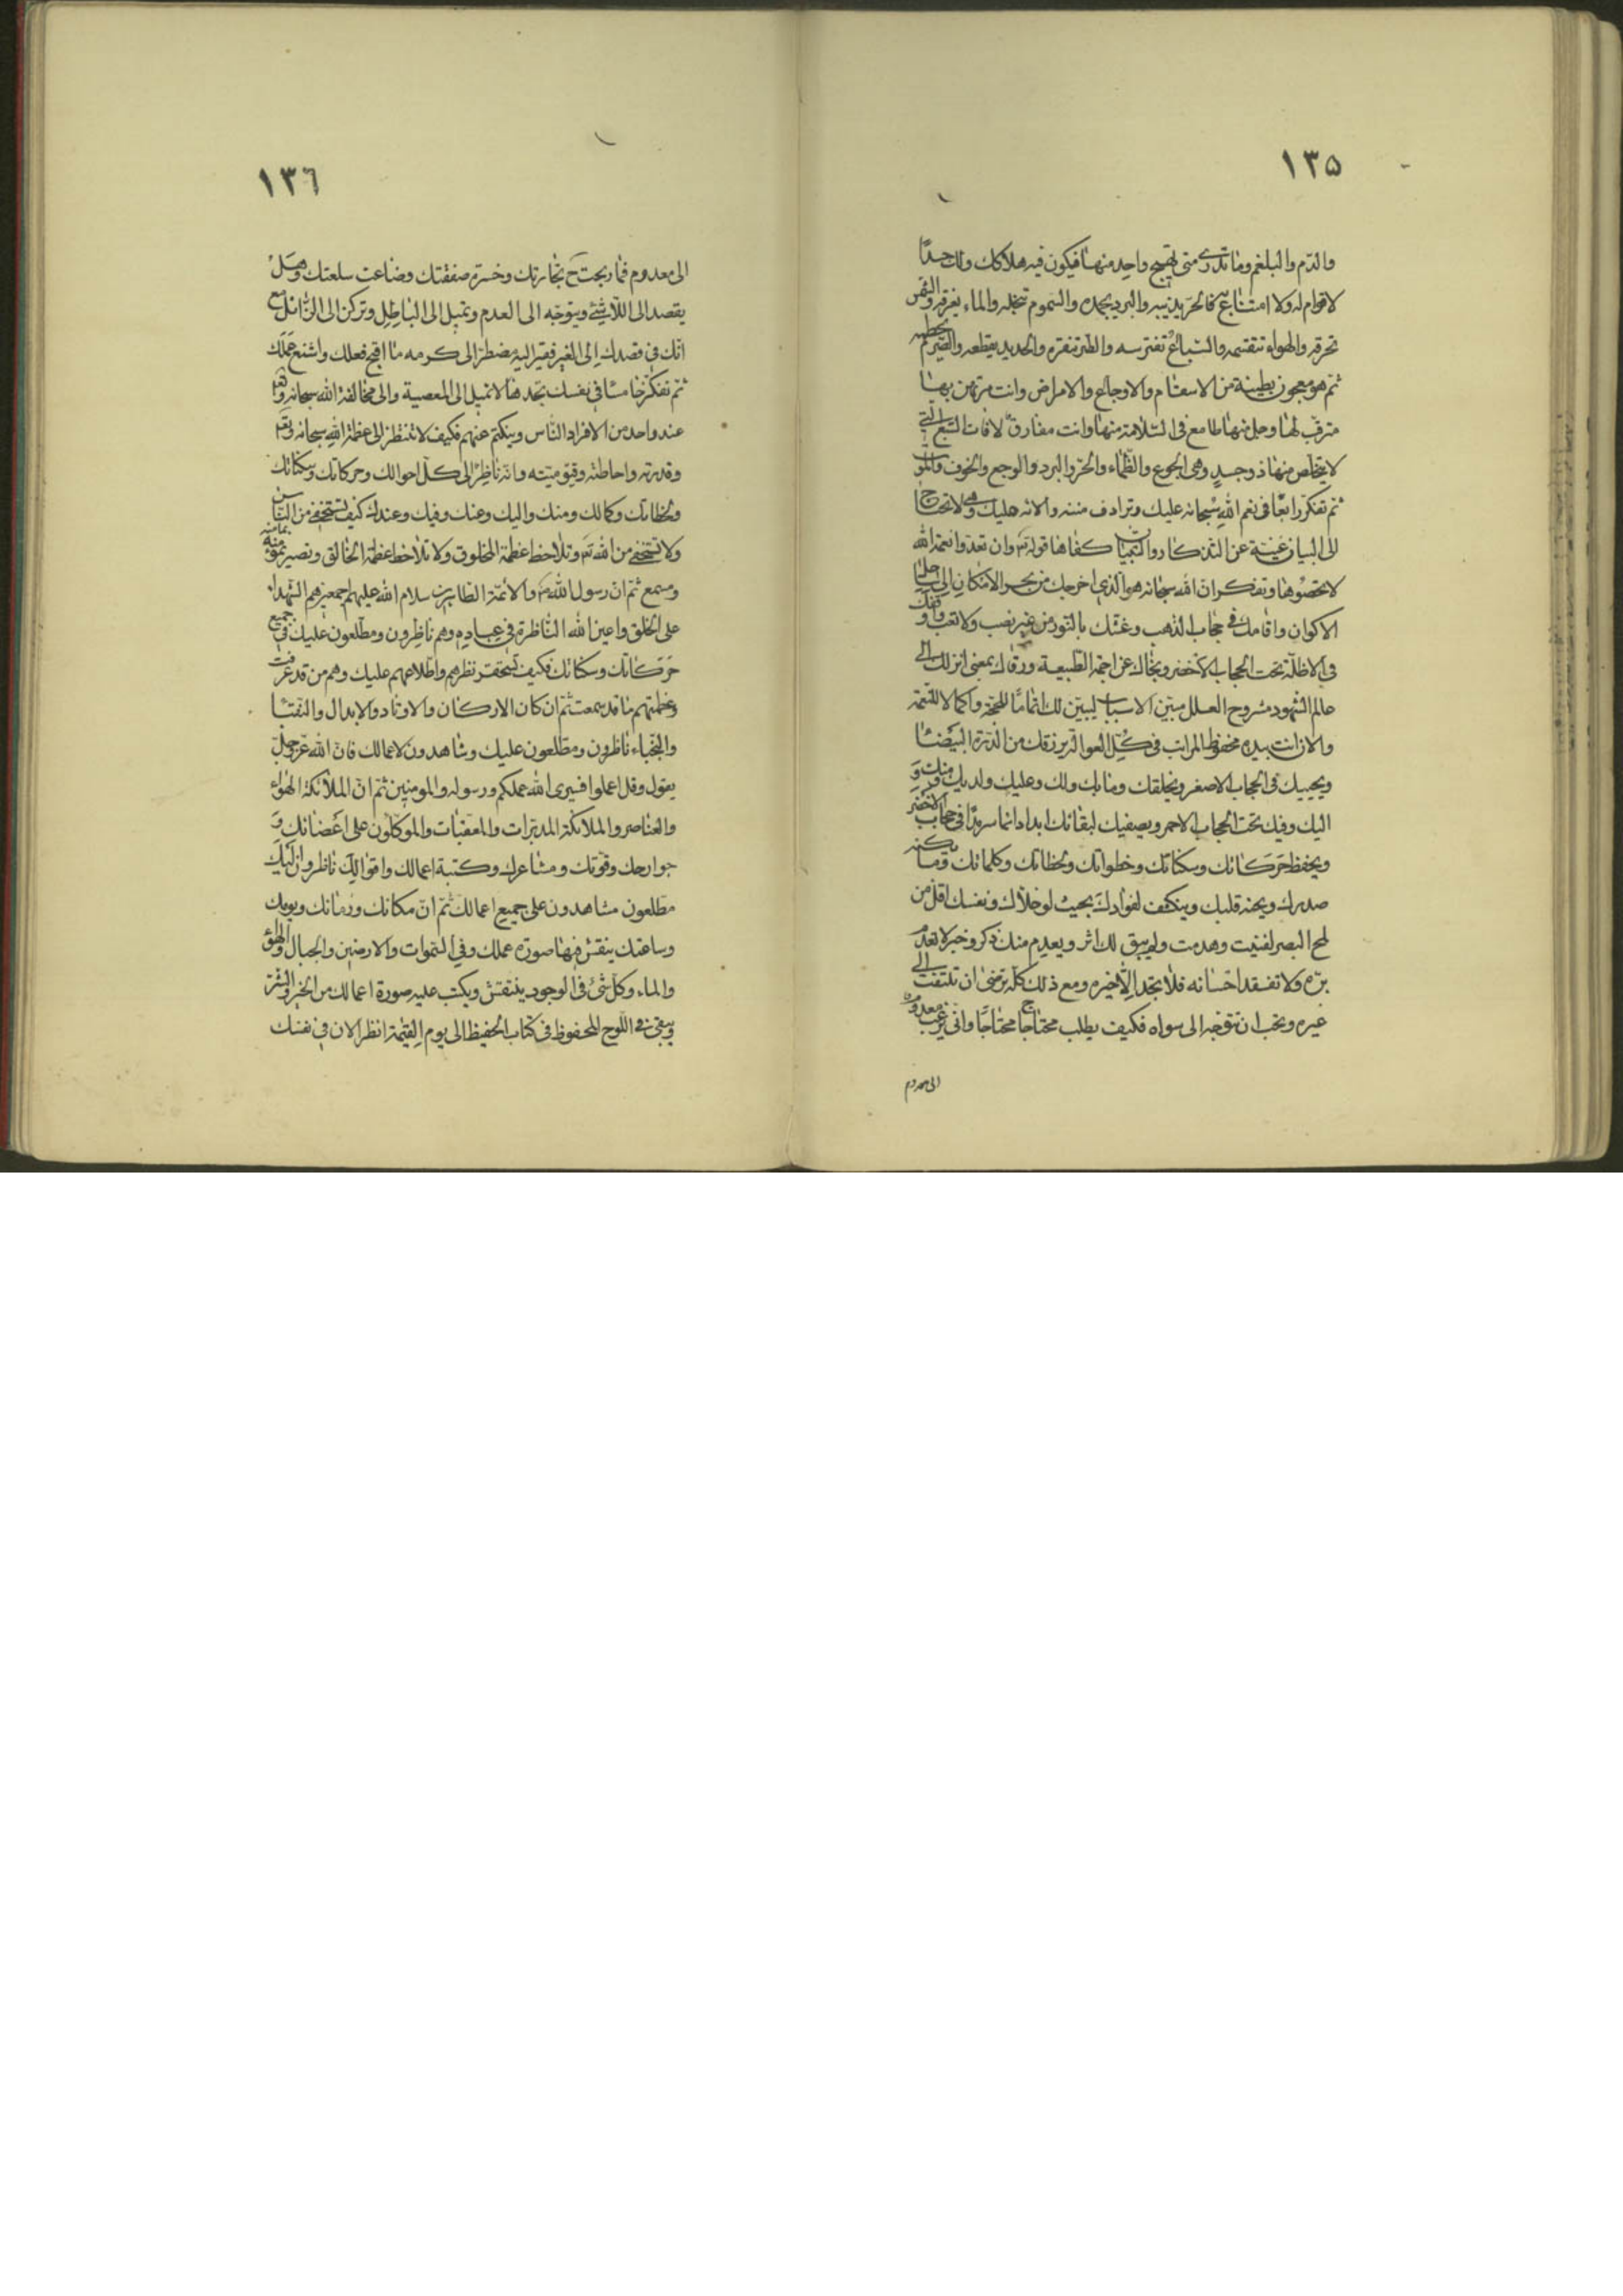 ١٣٥
والدم والبلغم وما تدرى متى تهيج واحد منها فيكون فيه هلاكك ولك جسدا
لا قوام له ولا امتناع فالحر يذيبه والبرد يجمده والسموم تتخلله والماء يغرقه والشمس
تحرقه والهواء تقتسمه والسباع تفترسه والطير تنقره والحديد يقطعه والصدم يحطمه
ثم هو معجون بطينة من الاسقام والاوجاع والامراض وانت مرتهن بها
مترقب لها وجل منها طامع فى السلامة منها وانت مقارن لآفات السبع التى
لا يتخلص منها ذو جسد وهى الجوع والظماء والحر والبرد والوجع والخوف والموت
ثم تفكر رابعا فى نعم الله سبحانه عليك وترادف مننه وآلائه عليك وهى لا تحتاج
الى البيان غنية عن التذكار والتبيان كفاها قوله تع وان تعدوا نعمة الله
لا تحصوها وتفكر ان الله سبحانه هو الذى اخرجك من بحر الامكان الى ساحل
الاكوان واقامك فى حجاب الذهب وغمسك بالنور من غير نصب ولا تعب و
فى الاظلة تحت الحجاب الاخضر ونجاك عن اجمة الطبيعة ورقاك بمعنى انزلك الى
عالم الشهود مشروح العلل مبين الاسباب ليبين لك اتماما للحجة واكمالا للنعمة
والان انت بيده محفوظ المراتب فى كل العوالم يرزقك من الذرة البيضاء
ويحييك فى الحجاب الاصفر ويخلقك وما بك ولك وعليك ولديك ومنك و
اليك وفيك تحت الحجاب الاحمر ويصفيك لبقائك ابدا دائما سرمدا فى حجاب الاخضر
ويحفظ حركاتك وسكناتك وخطواتك ولحظاتك وكلماتك وما يكنه
صدرك ويجنه قلبك وينكشف لفؤادك بحيث لو خلاك ونفسك اقل من
لمح البصر لفنيت وهدمت ولم يبق لك اثر ويعدم منك ذكر وخبر لا تعدم
بره ولا تفقد احسانه فلا تجد الا خيره ومع ذلك كله ترضى ان تلتفت الى
غيره وتحب ان تتوجه الى سواه فكيف يطلب محتاج محتاجا وانى يرغب معدوم
الى معدوم
١٣٦
الى معدوم فما ربحت ح تجارتك وخسرت صفقتك وضاعت سلعتك وهل
يقصد الى اللاشئ ويتوجه الى العدم وتميل الى الباطل وتركن الى الزائل مع
انك فى قصدك الى الغير فقير اليه مضطر الى كرمه ما اقبح فعلك واشنع عملك
ثم تفكر خامسا فى نفسك تجدها لا تميل الى المعصية والى مخالفة الله سبحانه
عند واحد من الافراد الناس ويتكتم عنهم فكيف لا تنظر الى عظمة الله سبحانه وتع
وقدرته واحاطته وقيوميته وانه ناظر الى كل احوالك وحركاتك وسكناتك
ولحظاتك وكمالك ومنك واليك وعنك وفيك وعندك كيف تستخفى من الناس
ولا تستخفى من الله تع وتلاحظ عظمة المخلوق ولا تلاحظ عظمة الخالق وتصير
ومسمع ثم ان رسول الله ص والائمة الطاهرين سلام الله عليهم اجمعين هم الشهداء
على الخلق واعين الله الناظرة فى عباده وهم ناظرون ومطلعون عليك فى جميع
حركاتك وسكناتك فكيف تستحقر نظرهم واطلاعهم عليك وهم من قد عرفت
وعظمتهم ما قد سمعت ثم ان كان الاركان والاوتاد والابدال والنقباء
والنجباء ناظرون ومطلعون عليك وشاهدون لاعمالك فان الله عز وجل
يقول وقل اعملوا فسيرى الله عملكم ورسوله والمومنين ثم ان الملائكة الهواء
والعناصر والملائكة المدبرات والمعقبات والموكلون على اعضائك و
جوارحك وقوتك ومشاعرك وكتبة اعمالك واقوالك ناظرون اليك
مطلعون مشاهدون على جميع اعمالك ثم ان مكانك وزمانك ويومك
وساعتك ينقش فيها صورة عملك وفى السموات والارضين والجبال والهواء
والماء وكل شئ فى الوجود ينتقش ويكتب عليه صورة اعمالك من الخير والشر
ويبقى فى اللوح المحفوظ فى كتاب الحفيظ الى يوم القيمة انظر الان فى نفسك